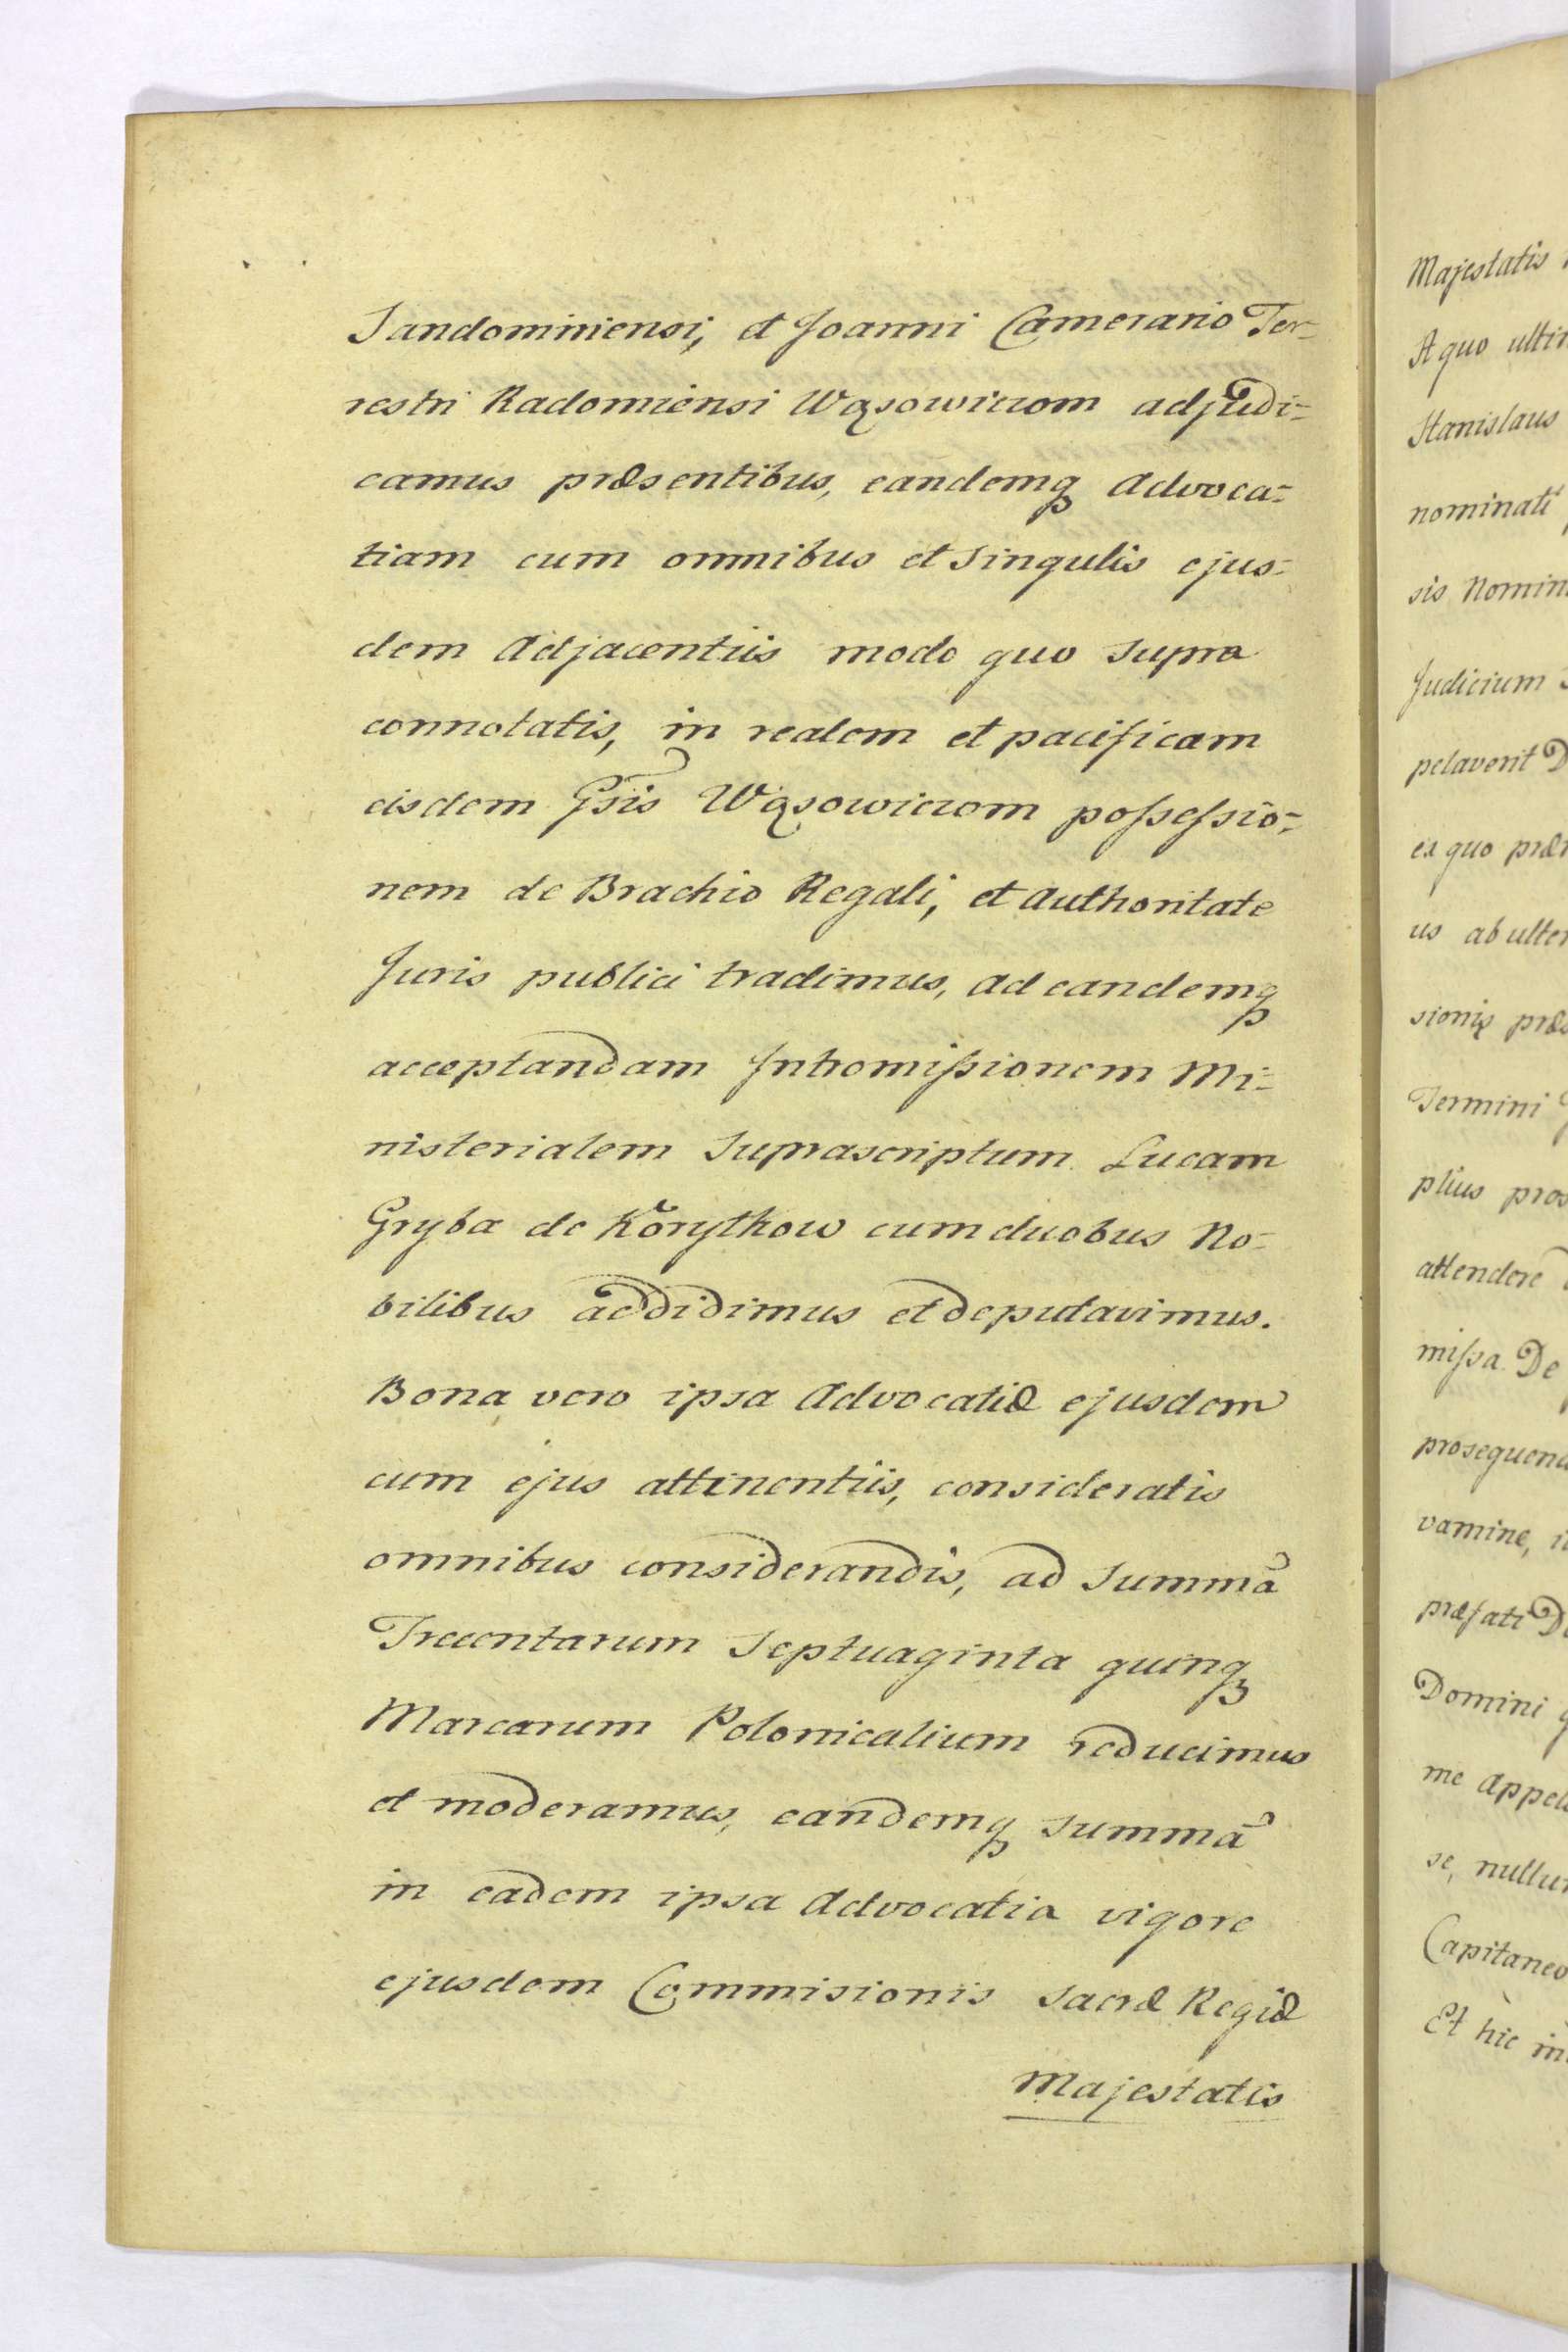 Sandomiriensi, et Joanni Camerario Ter-
restri Radomiensi Wąsowiczom adjudi-
camus præsentibus, eandemq advoca-
tiam cum omnibus et singulis ejus-
dem Adjacentiis modo quo supra
connotatis, in realem et pacificam
eisdem Gsis Wąsowiczom possessio-
nem de Brachio Regali, et authoritate
Juris publici tradimus, ad eandemq
acceptandam Intromissionem Mi-
nisterialem suprascriptum Lucam
Gryba de Korythow cum duobus No-
bilibus addidimus et deputavimus.
Bona vero ipsa Advocatiæ ejusdem
cum ejus attinentiis, consideratis
omnibus considerandis, ad summã
Trecentarum Septuaginta quinq
Marcarum Polonicalium reducimus
et moderamus, eandemq summã
in eadem ipsa Advocatia vigore
ejusdem Commisionis sacræ Regiæ
Majestatis
Majestatis
A quo
Stanislaus
nominati
sis
Judicium
pelaverit
ex quo
us ab
sionis
Termini
plius
attendere
missa De
vamine,
præfati
Domini
me
se,
Capitaneo
Et hic